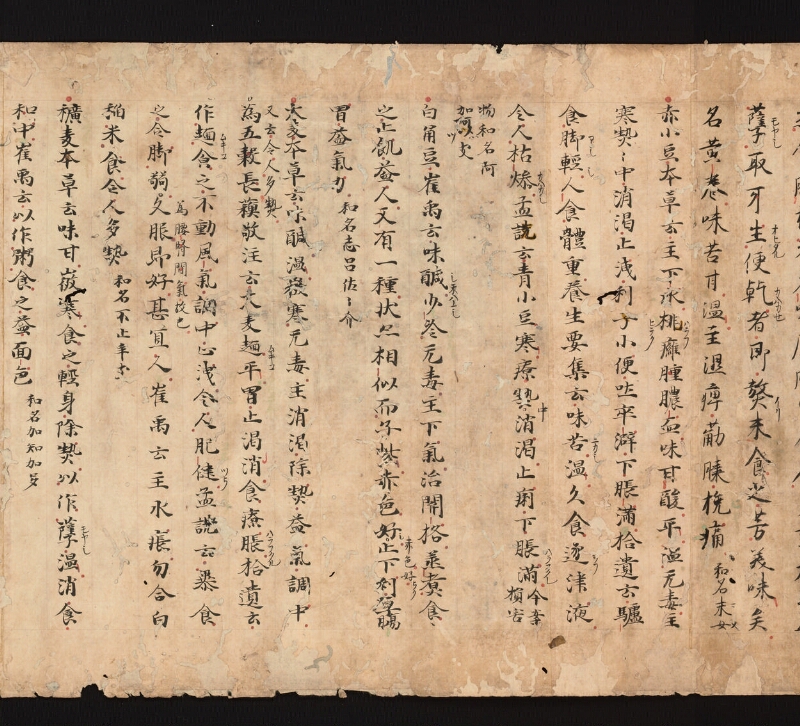 蘖取牙生便乾者即熬末食之芳美味矣
名黄巻味苦甘温主湿痺筋膝挽痛 和名末女
赤小豆本草云主下水桃癰腫膿血味甘酸平温无毒主
寒熱々中消渇止洩利小便吐卒澼下脹満拾遺云驢
食脚軽人食體重養生要集云味苦温久食逐津液
令人枯燥孟詵云青小豆寒療熱中消渇止痢下脹満
損害 物和名阿加
白角豆崔禹云味鹹少冷无毒主下氣治關格蒸煮食
之止飢益人又有一種状相似而子紫赤色好止下利
胃益氣力 和名志呂佐々介
大麦本草云味鹹温微寒无毒主消渇除熱益氣調中
又云令人多熱
為五穀長蘓敬注云大麦麺平胃止渇消食療脹拾遺云
作麺食之不動風氣調中止洩令人肥健孟詵云暴食
之令脚弱 為腰腎間氣故也
久服即好甚宜人崔禹云主水痕勿合白
稲米食令人多熱 和名不止牟支
穬麦本草云味甘微寒食之軽身除熱以作蘖温消食
和中崔禹云以作粥食之益面色 和名加知加多